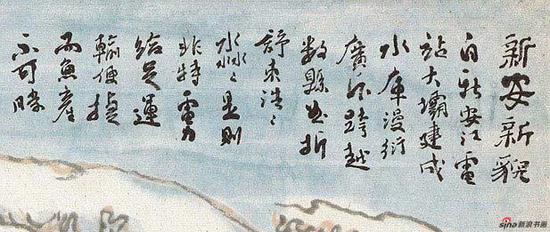 新安新貌
自新安江電
站大壩建成
水庫漫衍
廣泛跨越
數縣曲折
舒束浩〻
淼〻是則
非特電力
給足運
輸便捷
而魚產
不可勝
sina新浪书画